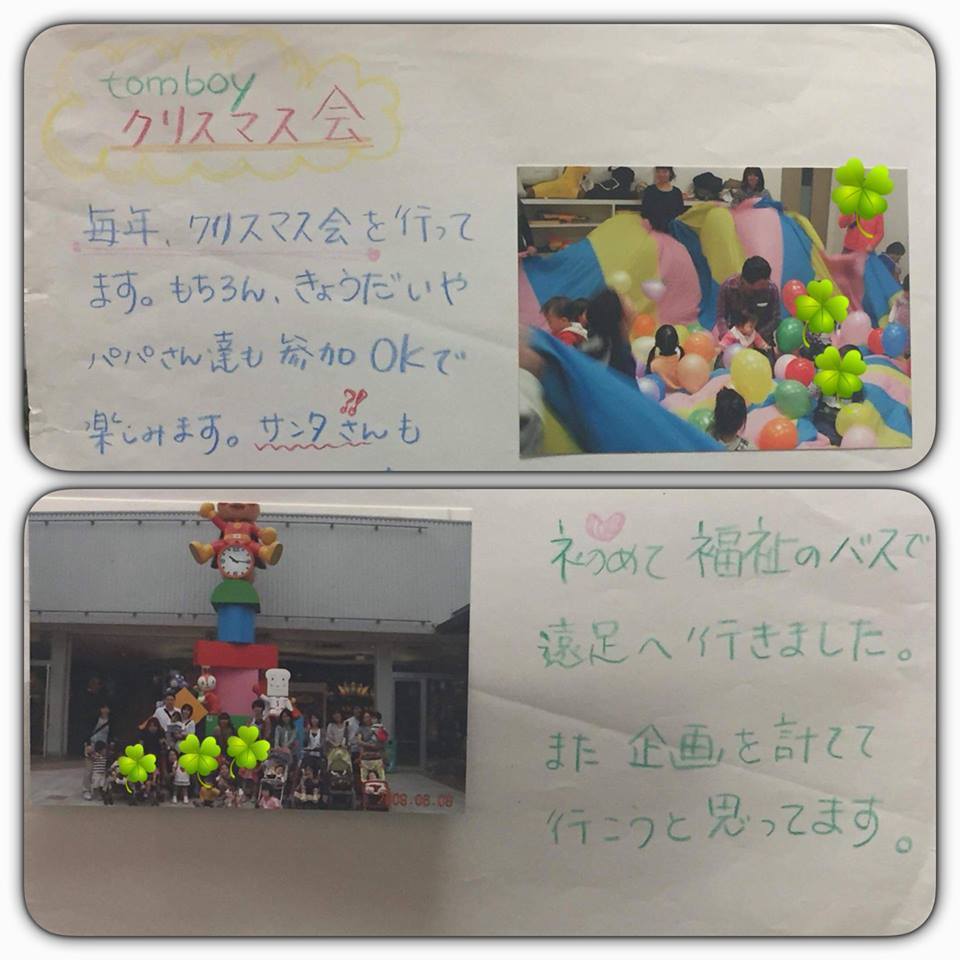 tomboy
クリスマス会
毎年、クリスマス会を行って
ます。もちろん、きょうだいや
パパさん達も参加OKで
楽しみます。サンタさんも
初めて福祉のバスで
遠足へ行きました。
また企画を計てて
行こうと思ってます。
2008.06.08